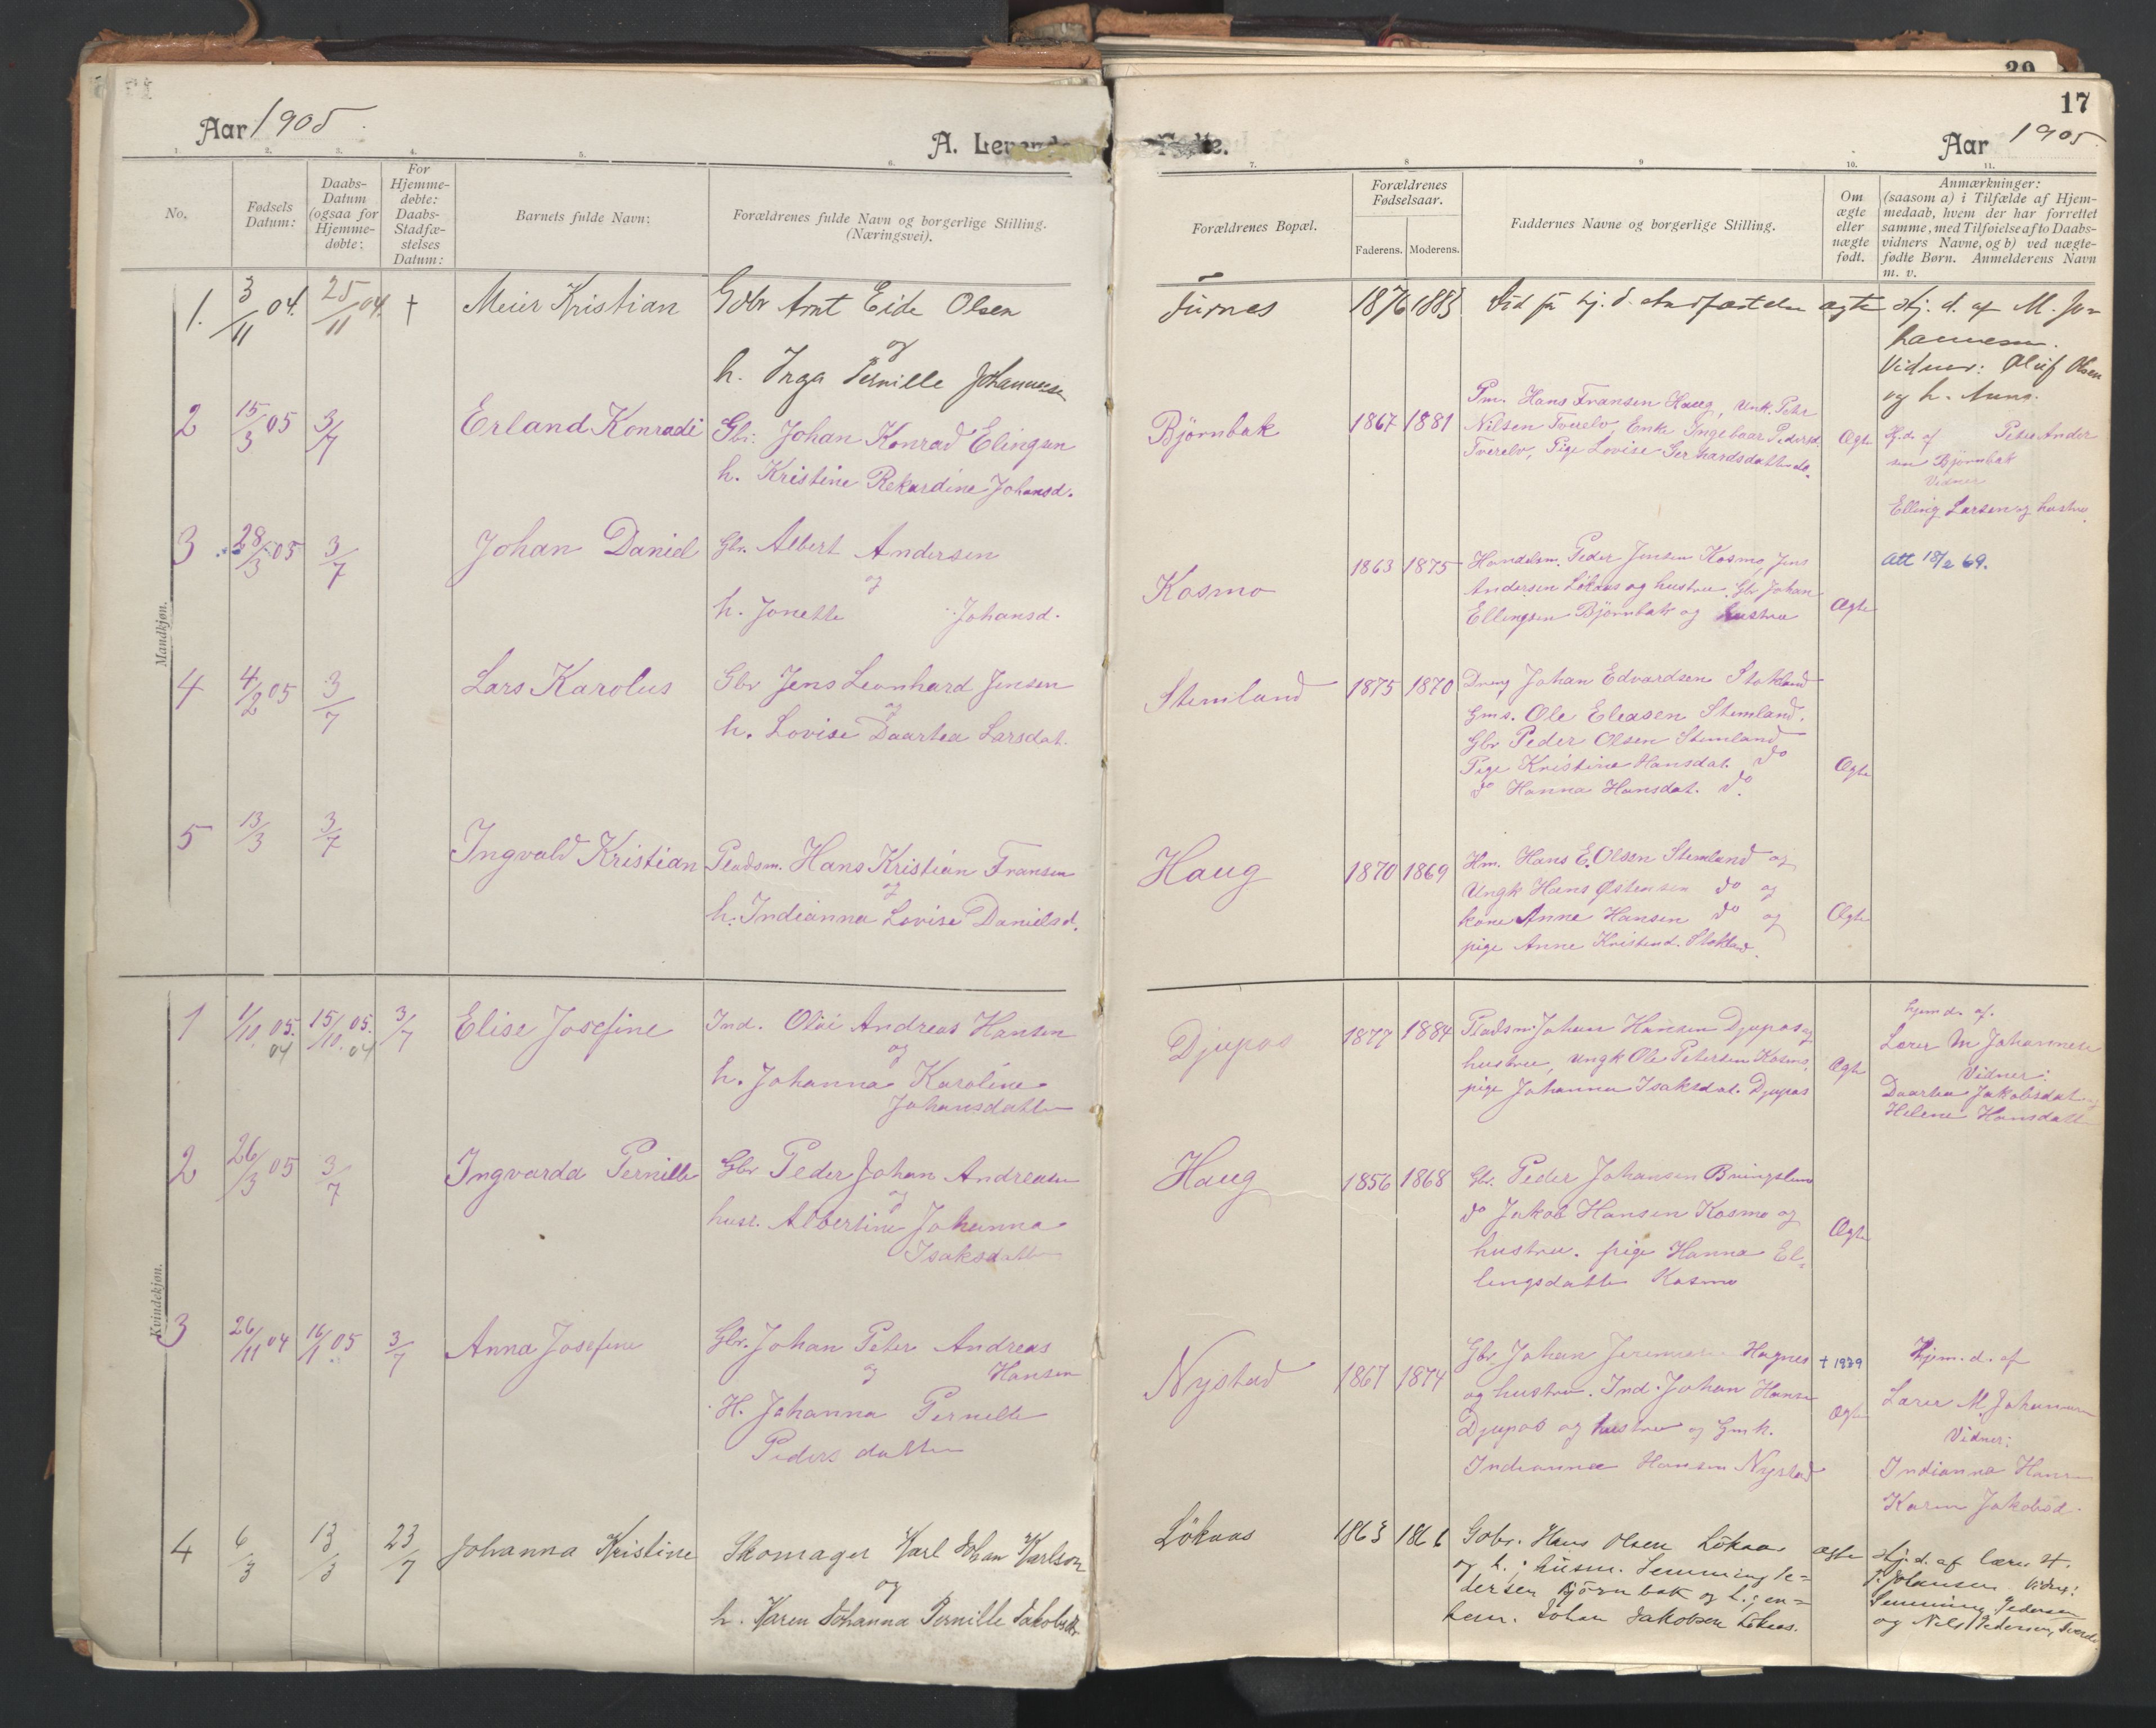 17
Aar 1905.
A. Levende
Fødte.
Aar 1905.
1. 2. 3. 4. 5. 6.
7. 8 9 10. 11.
No.
Fødsels Datum:
Daabs-Datum (ogsaa for Hjemme-døbte:
For Hjemme-døbte: Daabs-Stadfæ-stelses Datum:
Barnets fulde Navn:
Forældrenes fulde Navn og borgerlige Stilling. (Næringsvei).
Forældrenes Bopæl.
Forældrenes Fødselsaar.
Faderens. Moderens.
Faddernes Navne og borgerlige Stilling.
Om ægte eller uægte født.
Anmærkninger:
(saasom a) i Tilfælde af Hjem-
medaab, hvem der har forrettet
samme, med Tilføielse af to Daabs-
vidners Navne, og b) ved uægte-
fødte Børn. Anmelderens Navn
m. v.
Mandkjøn.
1. 3/11 04. 25/11 04. † Meier Kristian Gbr Arnt Eide Olsen
og
h. Inga Pernille Johannesen
Furnes 1876 1883 ægte Hj. d. af M. Jo-
hannesen.
Vidner: Oluf Olsen
og h. Anna.
2 15/3 05 3/7 Erland Konradi Gbr. Johan Konrad Elingsen
h. Kristine Rekardine Johansd.
Björnbak 1867 1881 Pm. Hans Fransen Haug, Unk. Petr
Nilsen Tverelv, Enke Ingebaar Pedersd.
Tverelv, Pige Lovise Gerhardsdatter do.
Ægte
Hj. d. af Peter Ander
sen Björnbak
Vidner
Elling Larsen og hustru.
3 28/3 05 3/7 Johan Daniel Gbr. Albert Andersen
og
h. Jonette Johansd.
Kosmo 1863 1875 Handelsm. Peder Jensen Kosmo, Jens
Andersen Lökaas og hustru, Gbr Johan
Ellingsen Björnbak og hustru
Ægte
Att 18/2 69.
4 4/2 05 3/7 Lars Karolus Gbr Jens Leonhard Jensen
og
h. Lovise Daartea Larsdat.
Stemland 1875 1870 Dreng Johan Edvardsen Stokland
Gms. Ole Eleasen Stemland.
Gbr Peder Olsen Stemland
Pige Kristine Hansdat. do
do Hanna Hansdat. do.
Ægte
5 13/3 3/7 Ingvald Kristian Pladsm. Hans Kristian Fransen
og
h. Indianna Lovise Danielsd.
Haug 1870 1869 Hm. Hans E. Olsen Stemland og
Ungk Hans Østensen do og
kone Anne Hansen do og
pige Anne Kristensd. Stokland.
Ægte
Kvindekjøn.
1 1/10 05. 04 15/10 05. 04 3/7 Elise Josefine Ind. Olai Andreas Hansen
og
h. Johanna Karoline
Johansdatter
Djupos 1877 1884 Pladsm. Johan Hansen Djupos og
hustru, Ungk Ole Petersen Kosmo,
pige Johanna Isaksdat. Djupos
Ægte
hjemd. af.
Lærer M Johannesen
Vidner:
Daartea Jakobsdat. og
Helene Hansdatt
2 26/3 05 3/7 Ingvarda Pernille Gbr Peder Johan Andreasen
og
husr. Albertine Johanna
Isaksdatter
Haug 1856 1868 Gbr. Peder Johansen
do Jakob Hansen Kosmo og
hustru. pige Hanna El-
lingsdatter Kosmo
Ægte
3 26/11 04 16/1 05 3/7 Anna Josefine Gbr. Johan Peter Andreas
og Hansen
H. Johanna Pernille
Pedersdatter
Nystad 1867 1874 Gbr Johan Hagnes
og hustru. Ind. Johan Hansen
Djupos og hustru og Gmk.
Indianna Hansen Nystad
† 1939
Ægte
Hjem. d. af
Lærer M. Johannesen
Vidner:
Indianna Hans
Karen Jakobsd.
4 6/3 13/3 23/7 Johanna Kristine Skomager Karl Johan Karlson
og
h. Karen Johanna Pernille Jakobsdr
Lökaas 1863 1866 Gbr. Hans Olsen Lökaas
og h.; husm. Lemming Pe-
dersen Björnbak og h.; en-
kem. Johan Jakobsen Lökaas.
ægte
Hj. d. af lærer H.
P. Johansen. Vidner:
Lemming Pedersen
og Nils Pedersen, Tverelv